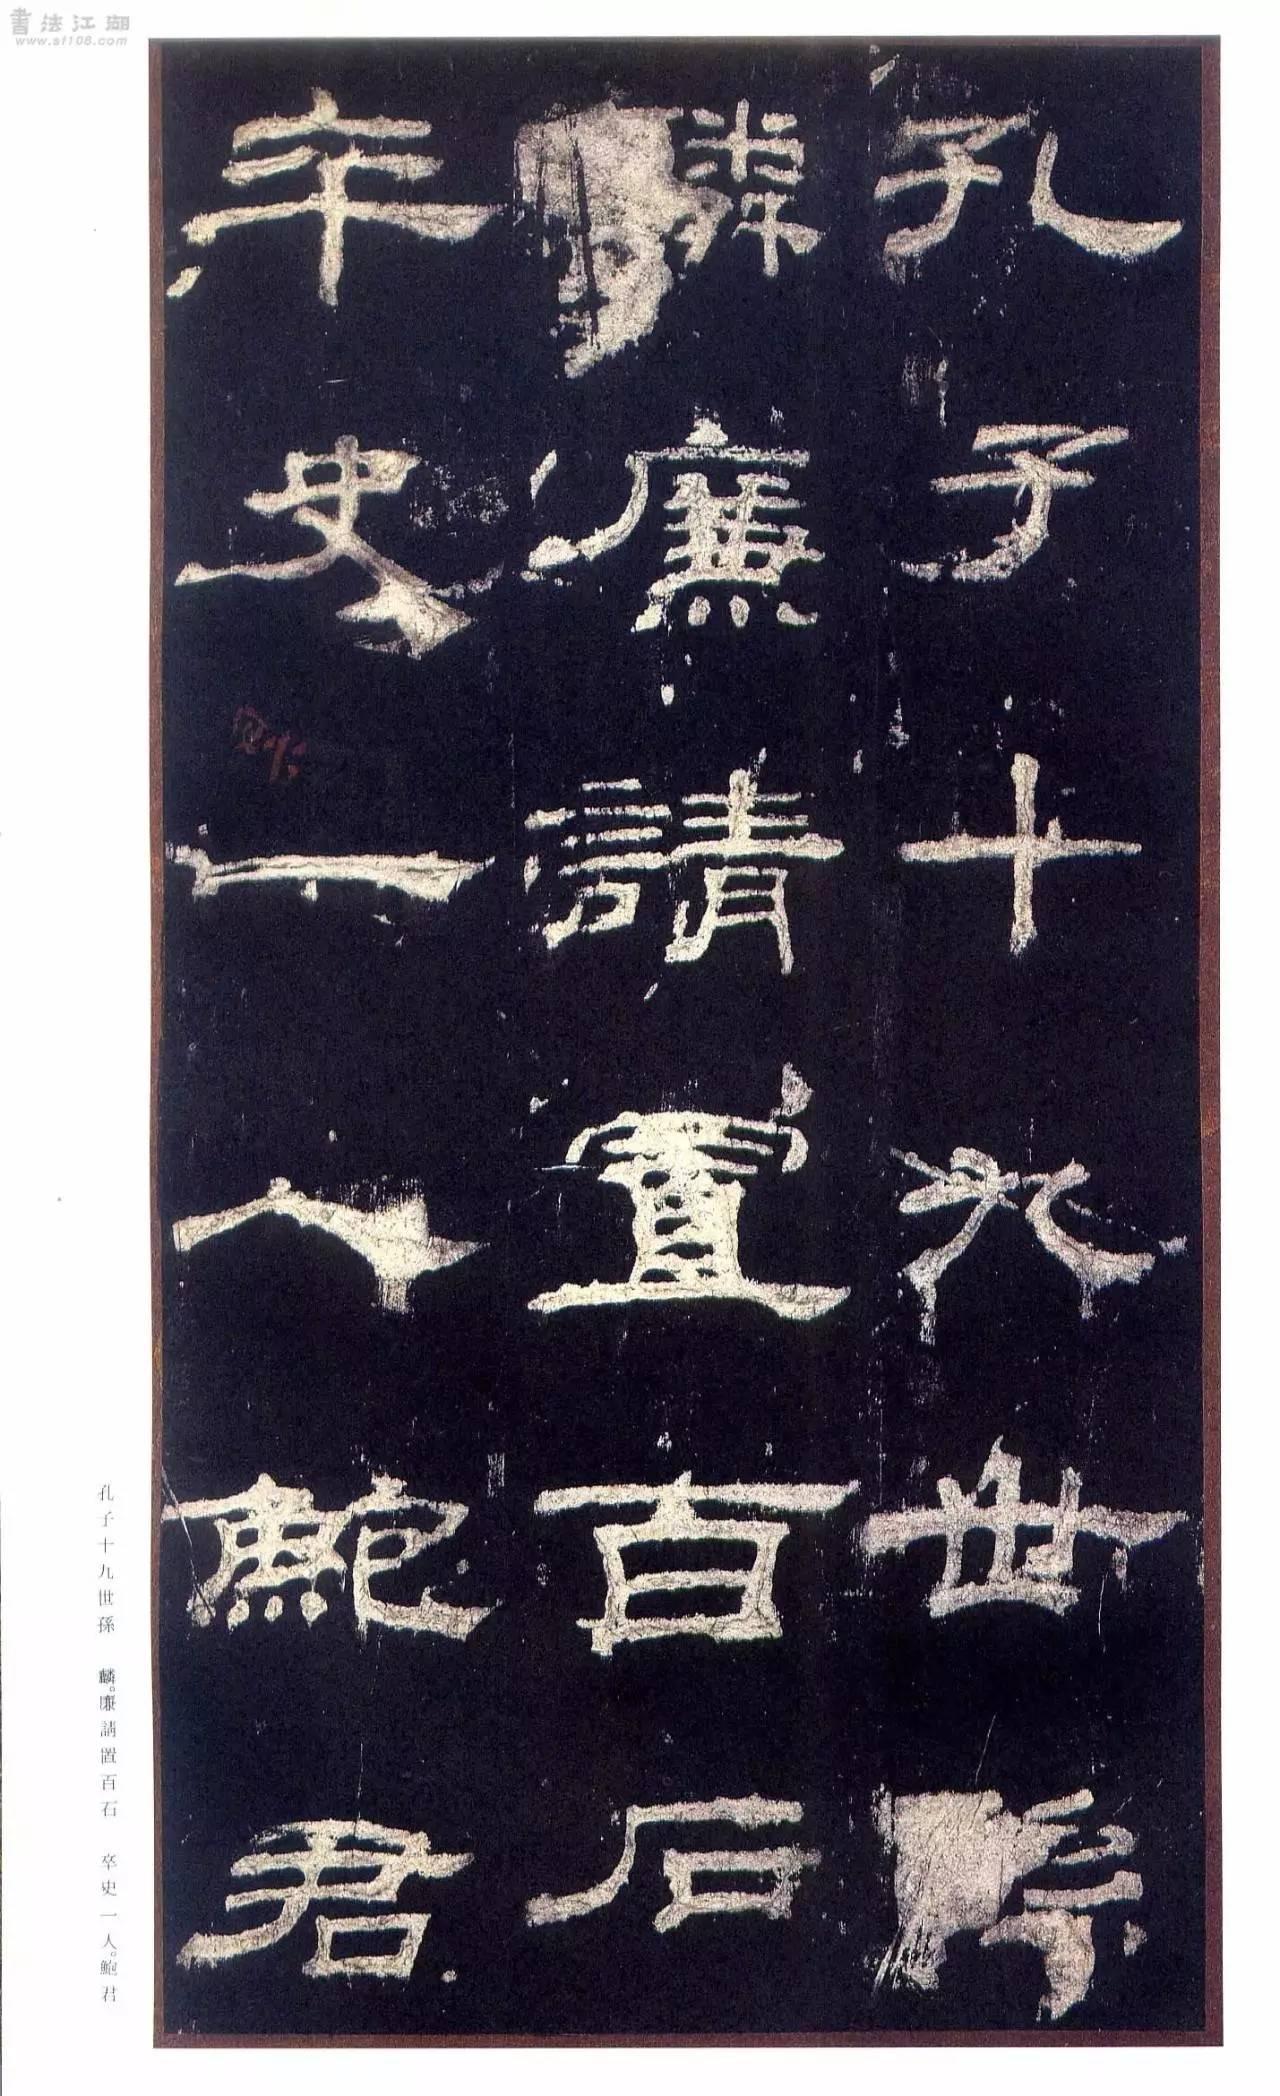 孔子十九世孫
麟廉請置百石
卒史一人鮑君
孔子十九世孫 麟。廉請置百石 卒史一人。鮑君
書法江湖
www.sf108.com